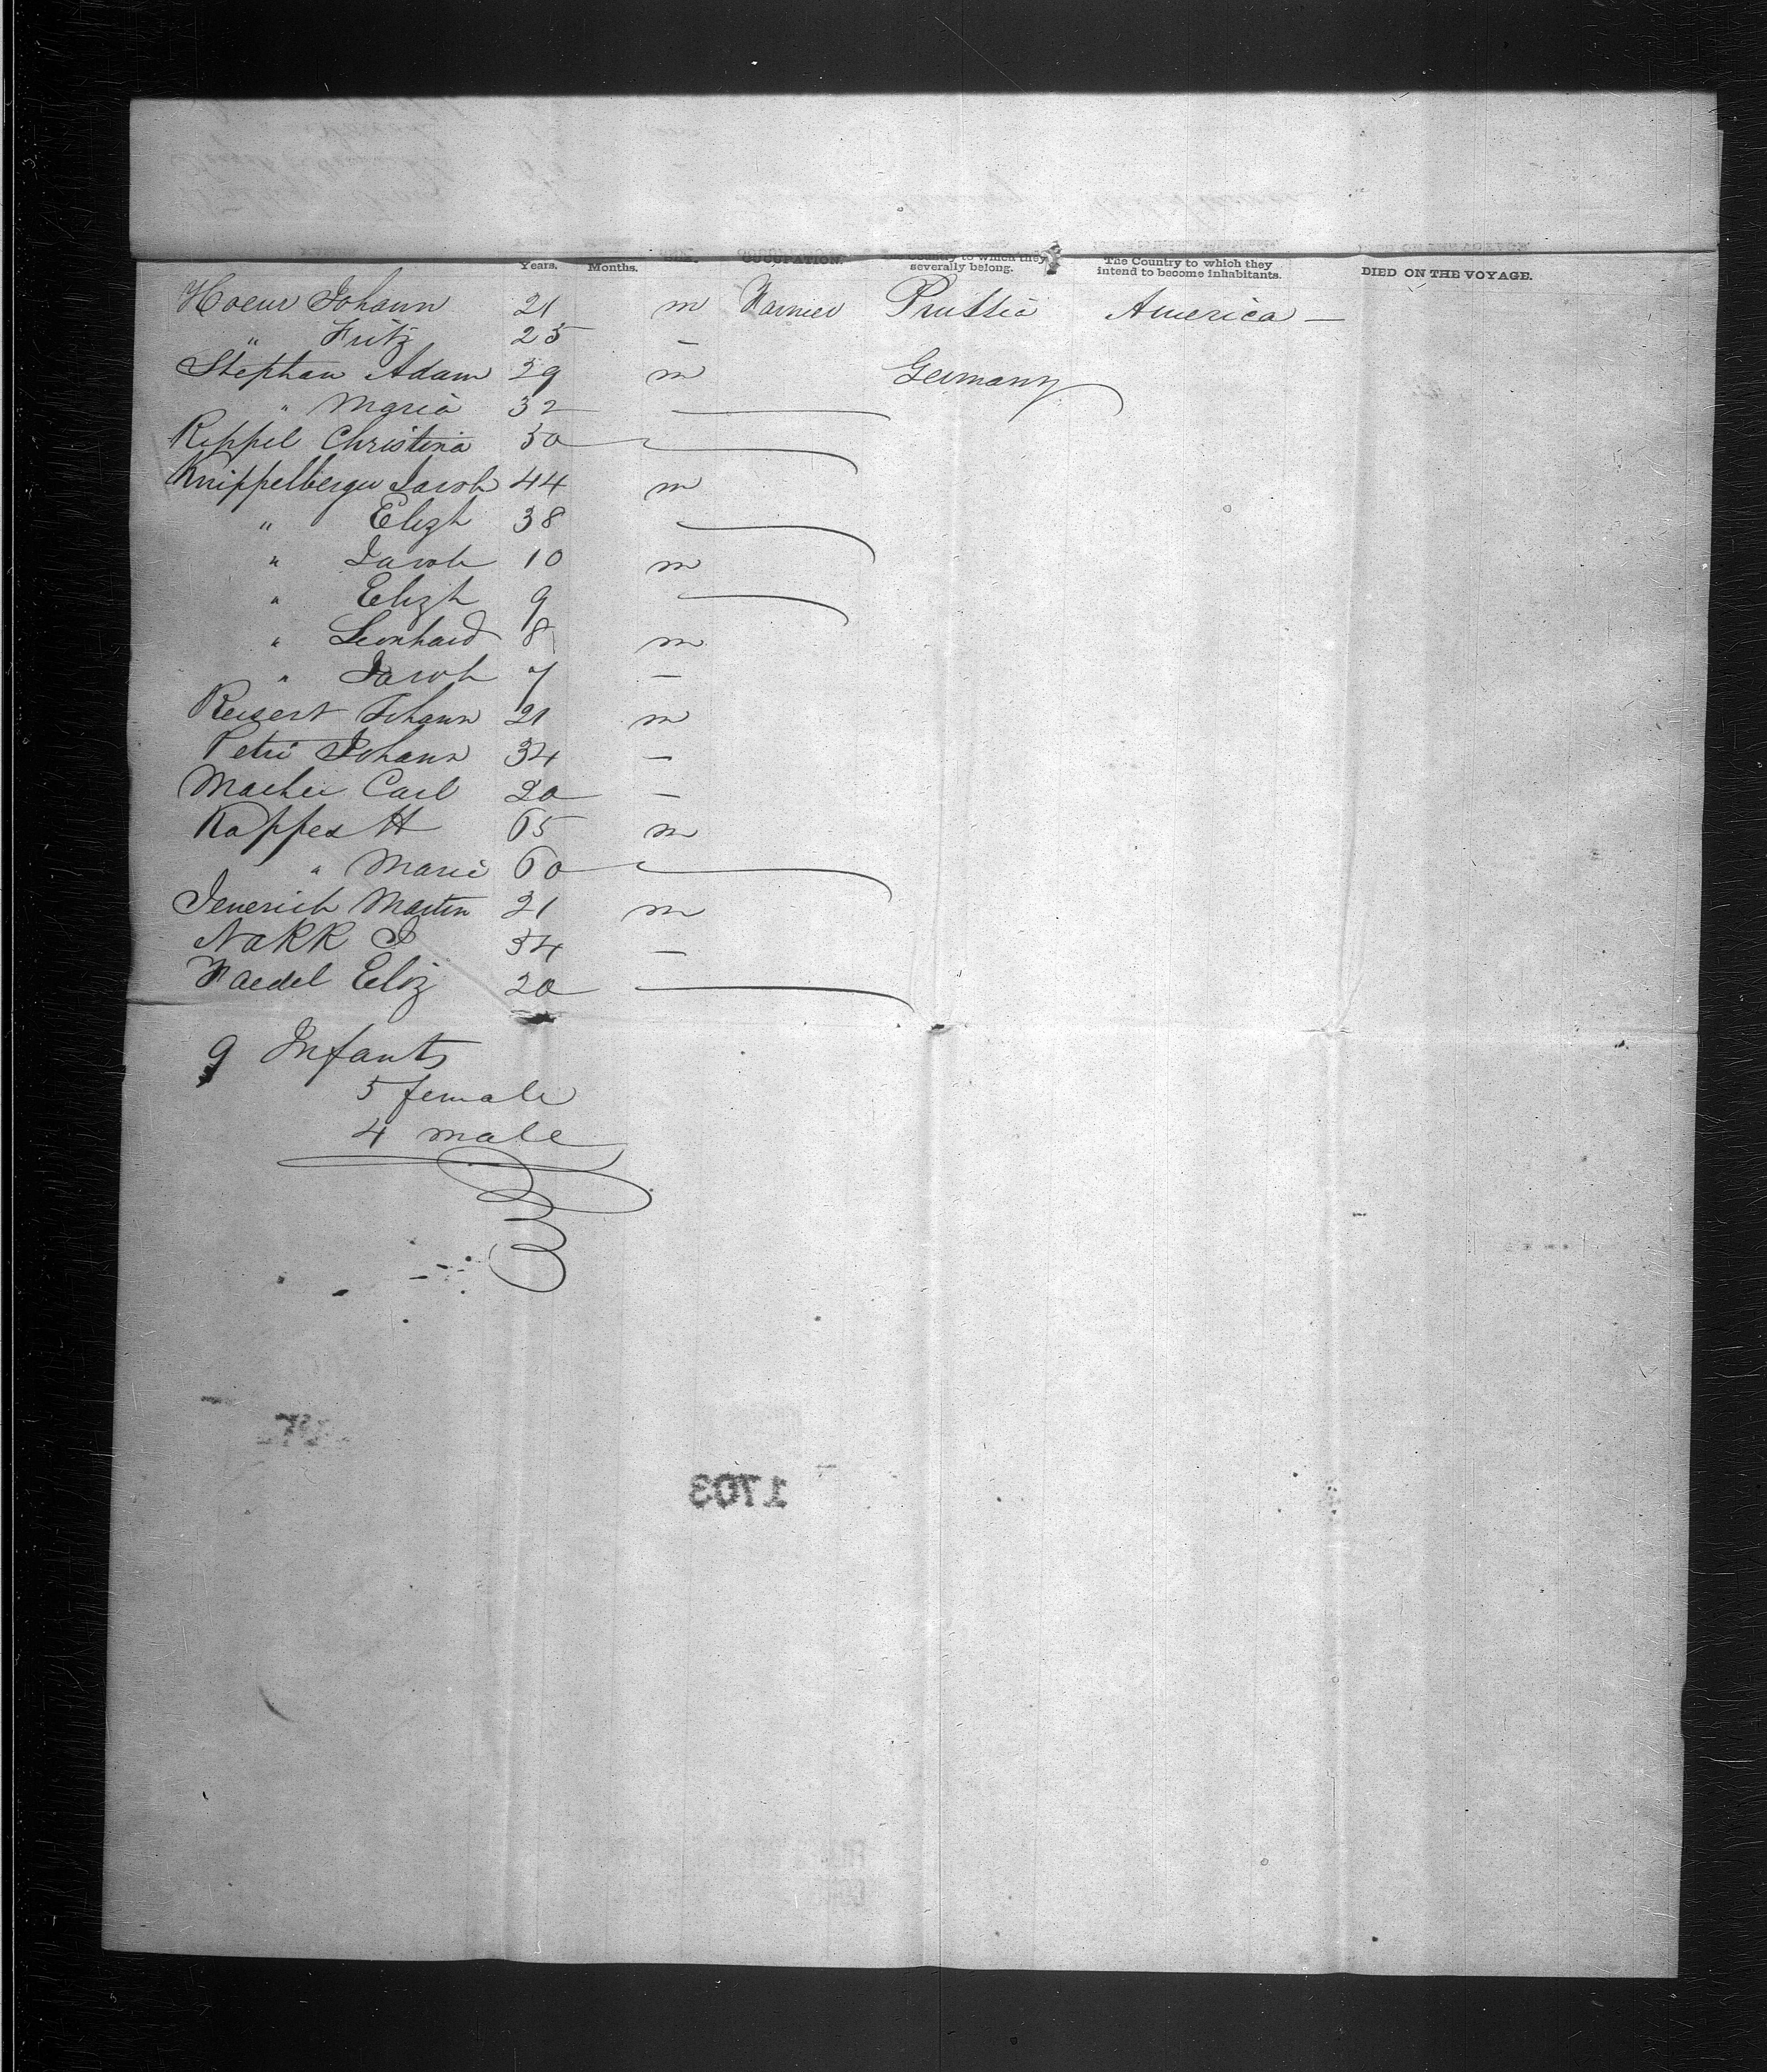 Years. Months. OCCUPATION. Country to which they severally belong. The Country to which they intend to become inhabitants. DIED ON THE VOYAGE.
Johann 21 m Farmer Prussia America —
" Fritz 25 —
Stephan Adam 29 m Germany
" Maria 32
Rippel Christina 50
Knippelberger Jacob 44 m
" Elizh 38
" Jacob 10 m
" Elizh 9
" Leonhard 8 m
" Jacob 7 —
Johann 21 m
Petri Johann 34 —
Carl 20 —
Kappes H 65 m
" Marie 60
Martin 21 m
NaKK J 34 —
Faedel Eliz 20
9 Infants
5 female
4 male
1703